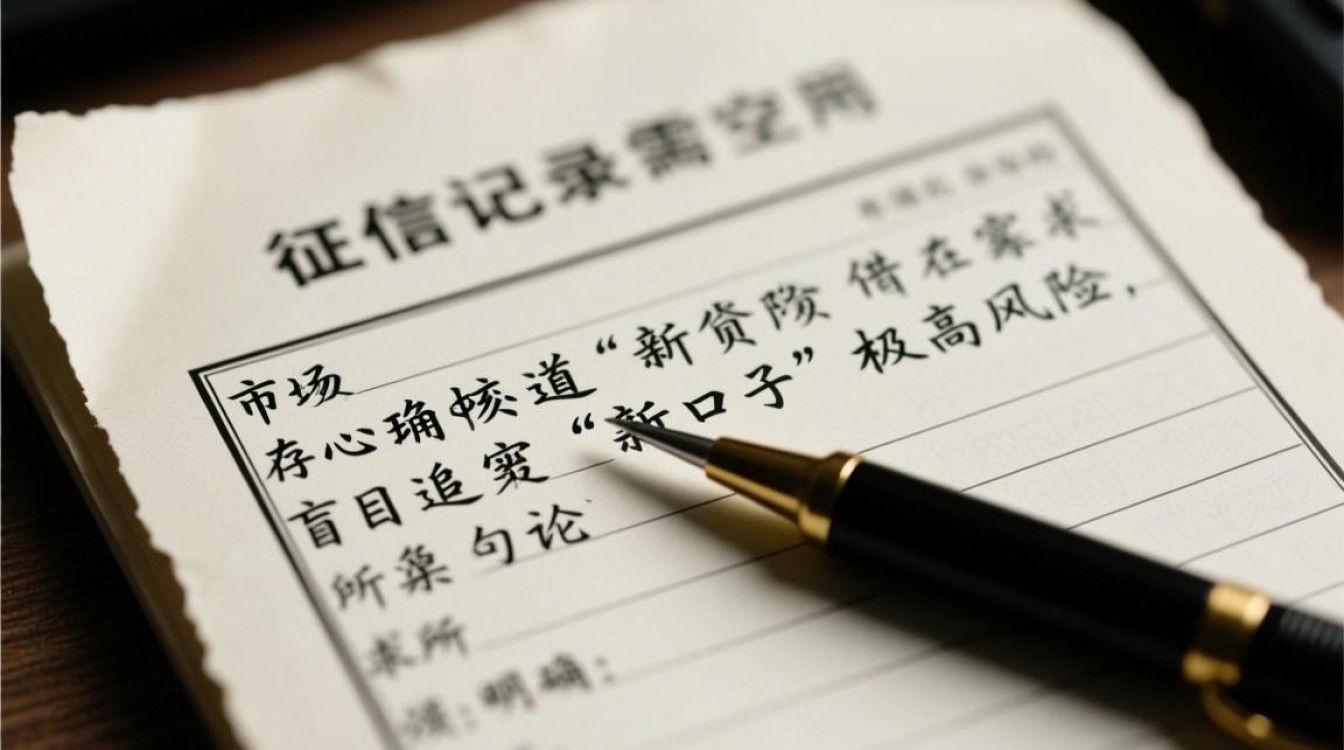 征信记录需空用
市场
存心确核道“新贷险 借在家求
盲目追 “新口子” 极高风险，
所 句论
求所
明确：